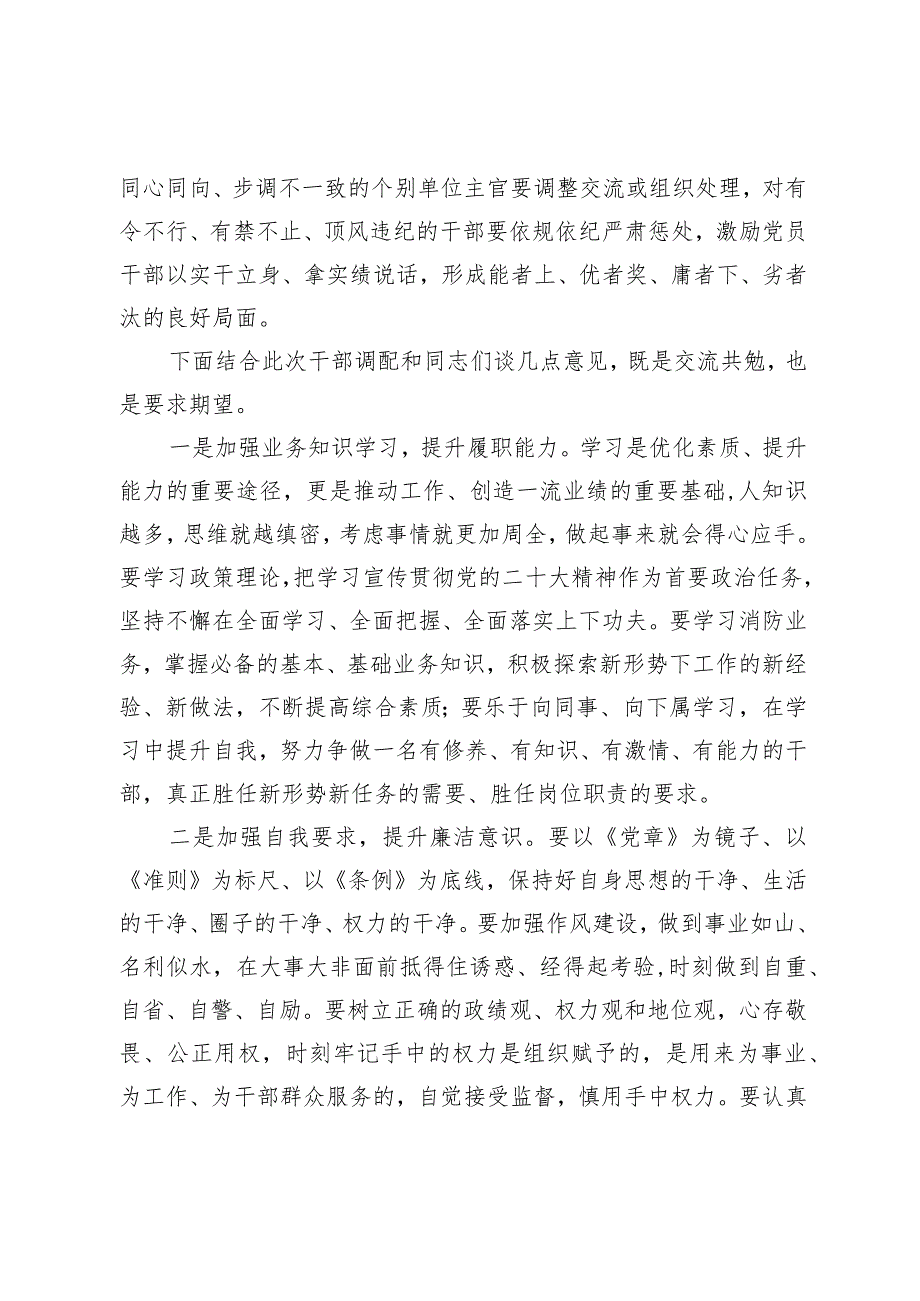 同心同向、步调不一致的个别单位主官要调整交流或组织处理，对有
令不行、有禁不止、顶风违纪的干部要依规依纪严肃惩处，激励党员
干部以实干立身、拿实绩说话，形成能者上、优者奖、庸者下、劣者
汰的良好局面。
下面结合此次干部调配和同志们谈几点意见，既是交流共勉，也
是要求期望。
一是加强业务知识学习，提升履职能力。学习是优化素质、提升
能力的重要途径，更是推动工作、创造一流业绩的重要基础,人知识
越多，思维就越缜密，考虑事情就更加周全，做起事来就会得心应手。
要学习政策理论，把学习宣传贯彻党的二十大精神作为首要政治任务，
坚持不懈在全面学习、全面把握、全面落实上下功夫。要学习消防业
务，掌握必备的基本、基础业务知识，积极探索新形势下工作的新经
验、新做法，不断提高综合素质；要乐于向同事、向下属学习，在学
习中提升自我，努力争做一名有修养、有知识、有激情、有能力的干
部，真正胜任新形势新任务的需要、胜任岗位职责的要求。
二是加强自我要求，提升廉洁意识。要以《党章》为镜子、以
《准则》为标尺、以《条例》为底线，保持好自身思想的干净、生活
的干净、圈子的干净、权力的干净。要加强作风建设，做到事业如山、
名利似水，在大事大非面前抵得住诱惑、经得起考验,时刻做到自重、
自省、自警、自励。要树立正确的政绩观、权力观和地位观，心存敬
畏、公正用权，时刻牢记手中的权力是组织赋予的，是用来为事业、
为工作、为干部群众服务的，自觉接受监督，慎用手中权力。要认真